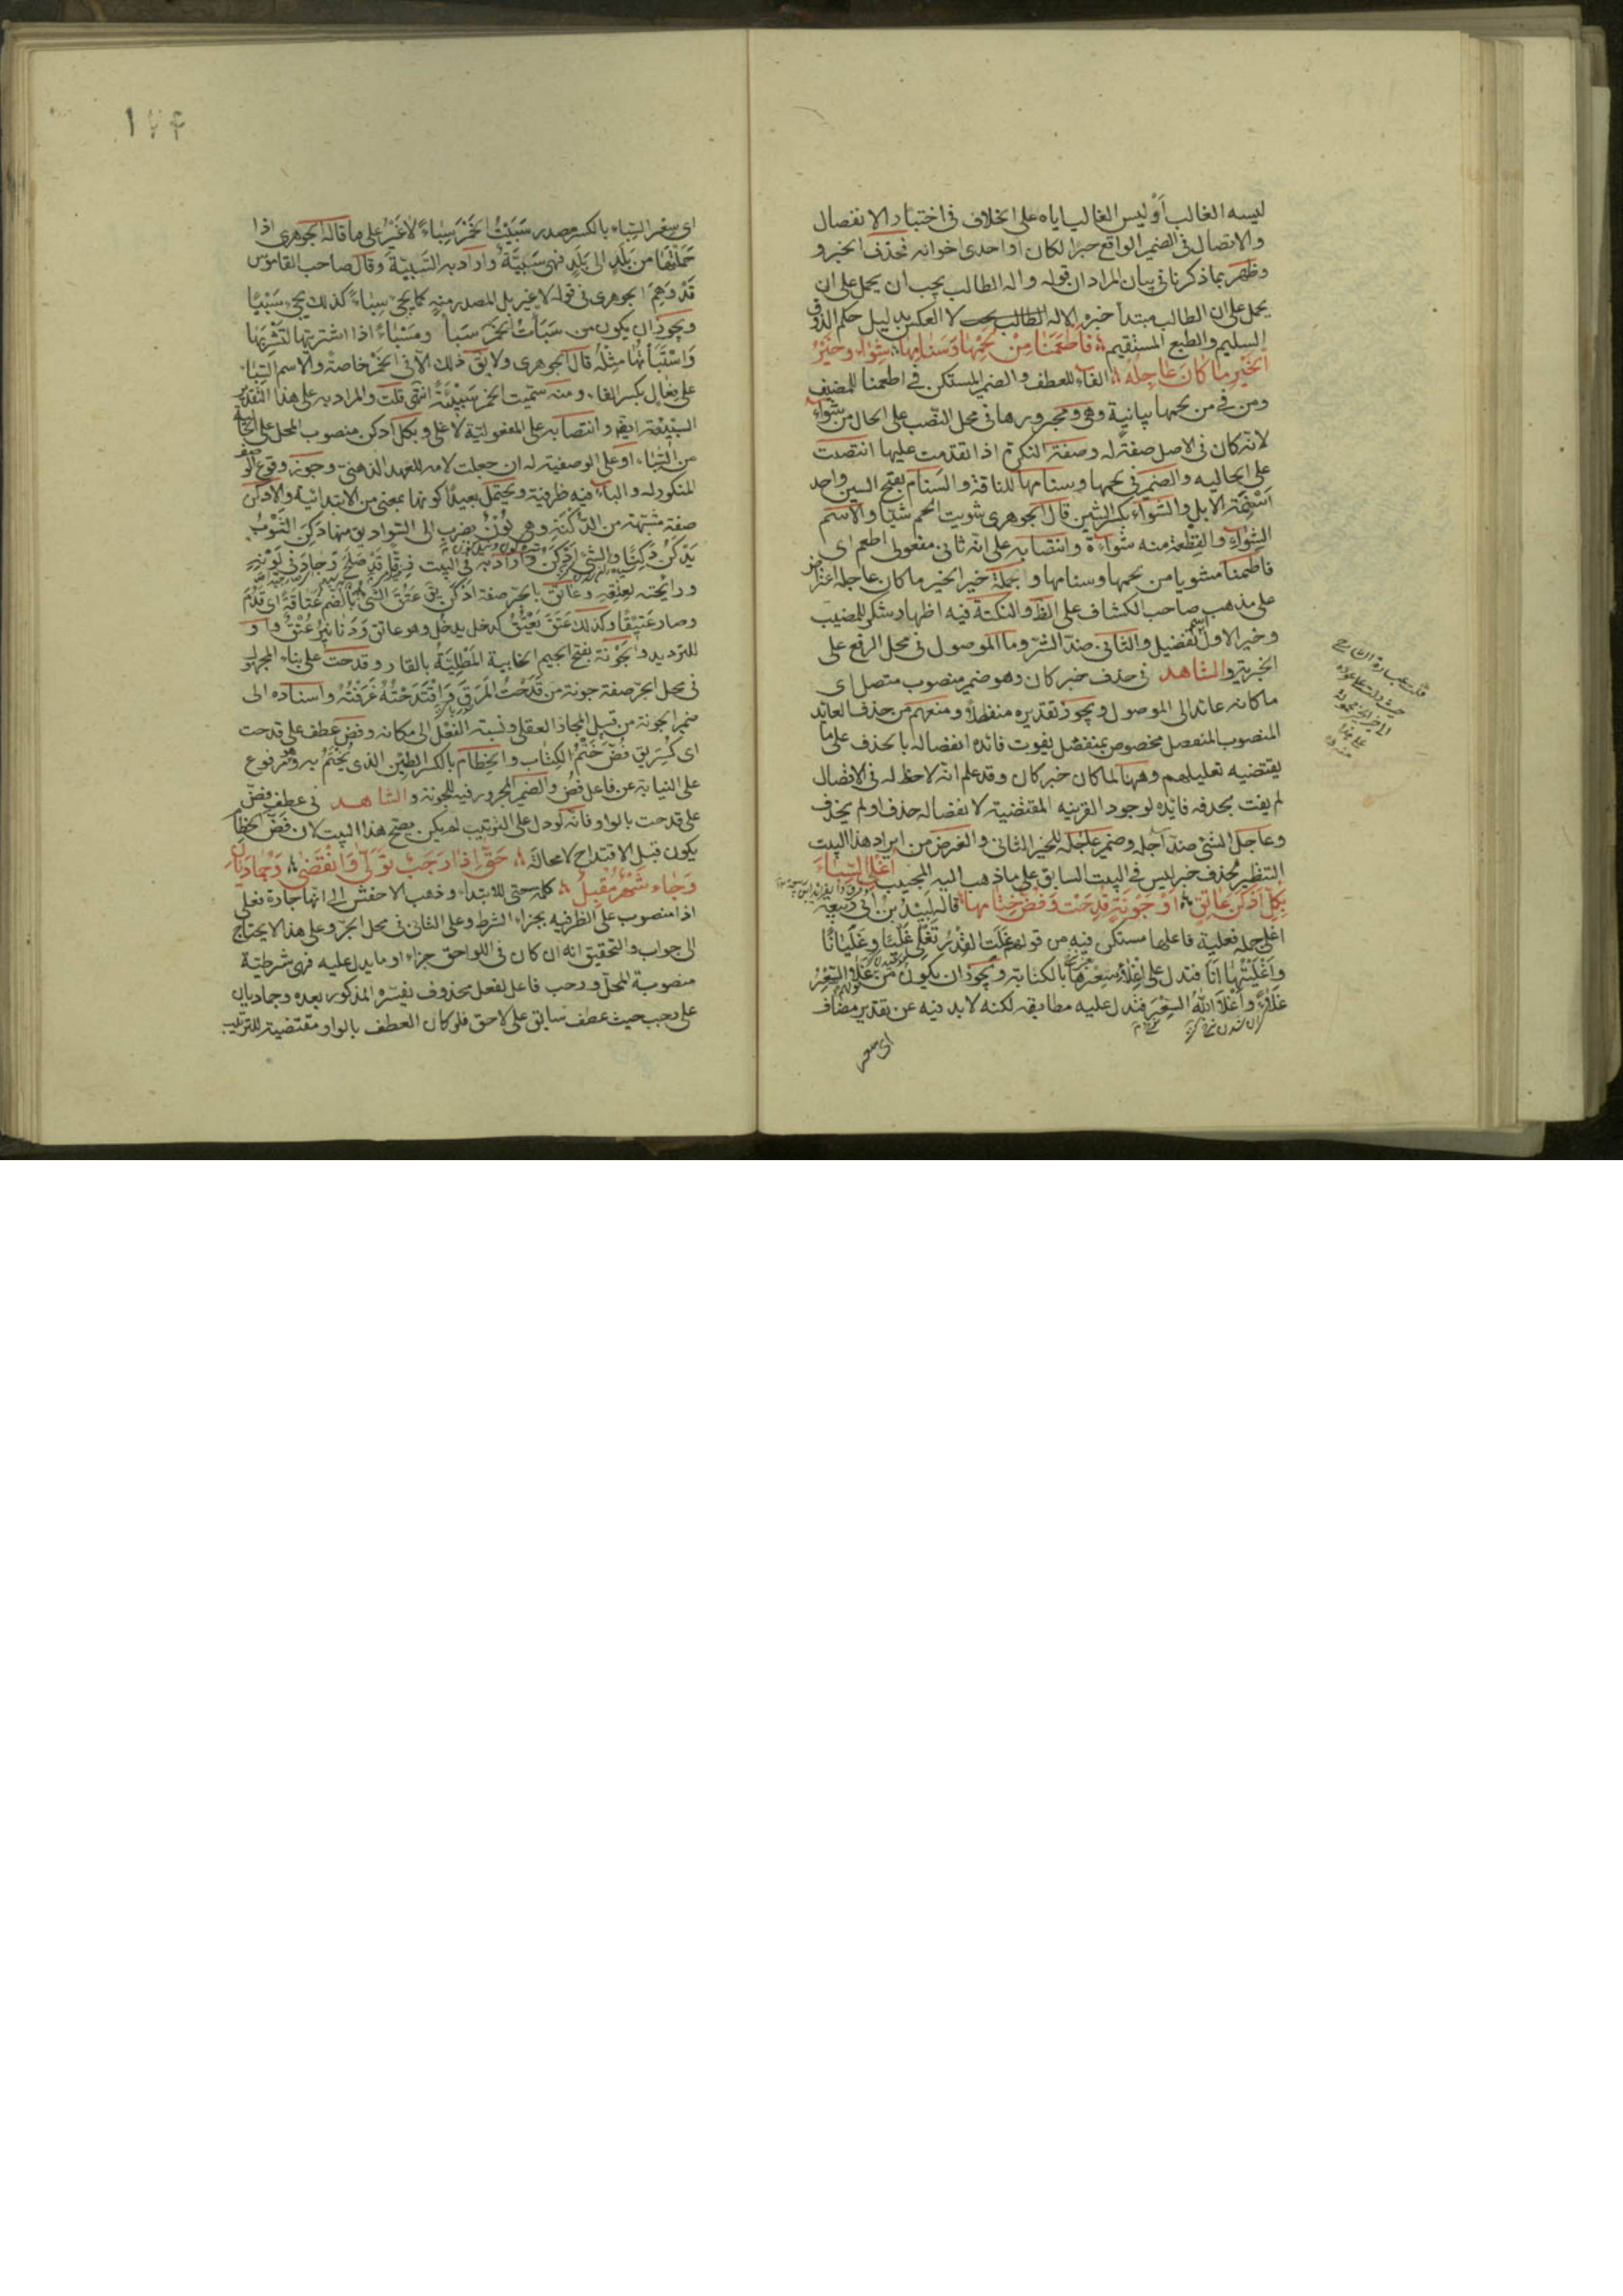 ليسه الغالب أو ليس الغالب اياه على الخلاف فى اختيار الانفصال
والاتصال فى الضمير الواقع خبرا لكان او احدى اخواته فحذف الخبر و
وظهر بما ذكرنا فى بيان المراد ان قوله واله الطالب يجب ان يحمل على ان
يحمل على ان الطالب مبتدأ خبره الاله الطالب لا العكس بدليل حكم الذوق
السليم والطبع المستقيم فَاَطْعَمَنا مِنْ لَحْمِها وَسَنامِها شِواءً وخَيْرُ
الخَيْرِ ما كانَ عاجِلُه الفاء للعطف والضمير المستكن فى اطعمنا للمضيف
ومن فى من لحمها بيانية وهى ومجرورها فى محل النصب على الحال من شواء
لانه كان فى الاصل صفة له وصفة النكرة اذا تقدمت عليها انتصبت
على الحاليه والضمير فى لحمها وسنامها للناقة والسنام بفتح السين واحد
اسنمة الابل والشواء بكسر الشين قال الجوهرى شويت اللحم شيا والاسم
الشواء والقطعة منه شواءة وانتصابه على انه ثانى مفعولى اطعم اى
فاطعمنا مشويا من لحمها وسنامها وجملة خير الخير ما كان عاجله اعتراض
على مذهب صاحب الكشاف على الظ والنكتة فيه اظهار شكر للمضيف
وخير الاول اسم تفضيل والثانى ضد الشر وما الموصول فى محل الرفع على
الخبرية والشاهد فى حذف خبر كان وهو ضمير منصوب متصل اى
ما كانه عائد الى الموصول ويجوز تقديره منفصلا ومنعهم من حذف العائد
المنصوب المنفصل مخصوص بمنفصل يفوت فائدة انفصاله بالحذف على ما
يقتضيه تعليلهم وههنا لما كان خبر كان وقد علم انه لاحظ له فى الاتصال
لم يفت بحذفه فائدة لوجود القرينه المقتضية لانفصاله حذف او لم يحذف
وعاجل الشئ ضد آجله وضمير عاجله للخير الثانى والغرض من ايراد هذا البيت
التنظير لحذف خبر ليس فى البيت السابق على ما ذهب اليه المجيب اُغْلِى السِّباءَ
بِكُلِّ اَدْكَنَ عاتِقٍ اَوْ جَوْنَةٍ قُدِحَتْ وَفُضَّ خِتامُها قاله لبيد بن ابى ربيعة
اغلى جملة فعلية فاعلها مستكن فيه من قولهم غَلَتِ القِدْرُ تَغْلِى غَلْيًا وغَلَيانًا
واَغْلَيْتُها اَنَا فتدل على اغلاء سعرها بالكناية ويجوز ان يكون من غَلا السِّعْرُ
غَلاءً واَغْلاهُ اللهُ السِّعْرَ فتدل عليه مطابقة لكنه لابد فيه عن تقدير مضاف
اى سعر
١٧٤
اى سعر السباء بالكسر مصدر سَبَيْتُ الخَمْرَ سِباءً لا غير على ما قاله الجوهرى اذا
حملتها من بلد الى بلد فهى سَبِيَّةٌ واراد به السَّبيّة وقال صاحب القاموس
قَدْ وَهِمَ الجوهرى فى قوله لا غير بل المصدر منه كما يجئ سِباء كذلك يجئ سَبْيًا
ويجوز ان يكون من سَبَأْتُ الخمرَ سَبأ ومَسْبأ اذا اشتريتها لتشربها
واسْتَبَأْتُها مِثْلُه قال الجوهرى ولا يق ذلك الا فى الخمر خاصة والاسم السباء
على فعال بكسر الفاء ومنه سميت الخمر سَبِيئَةً انتهى قلت والمراد به على هذا التقدير
السبيئة ايضا وانتصابه على المفعولية لاغلى وبكل ادكن منصوب المحل على الحالية
من السباء او على الوصفية له ان جعلت لامه للعهد الذهنى وجوز وقوع الوصف
المنكور له والباء فيه ظرفية ويحتمل بعيدا كونها بمعنى من الابتدائية والادكن
صفة مشبهة من الدُّكْنَة وهى لَوْنٌ يضرب الى السواد يق منها دَكِنَ الثوبُ
يَدْكَنُ دَكَنًا والشئ اَدْكَن واراد به فى البيت زِقًّا قد صلح وجاد فى لونه
ورائحته لعتقه وعاتق بالجر صفة ادكن يق عَتُقَ الشئ بالضم عَتاقَةً اى قَدُمَ
وصار عَتيقًا وكذلك عَتَقَ يَعْتُقُ كدخل يدخل وهو عاتق ودنانير عُتْقٌ واو
للترديد والجَوْنَة بفتح الجيم الخابية المَطْلِيَّةُ بالقار وقدحت على بناء المجهول
فى محل الجر صفة جونة من قَدَحْتُ المَرَقَ واقْتَدَحْتُه غَرَفْتُه واسناده الى
ضمير الجونة من قبيل المجاز العقلى ونسبة الفعل الى مكانه وفض عطف على قدحت
اى كُسِرَ يق فُضَّ خَتْمُ الكتاب والختام بالكسر الطين الذى يُخْتَمُ به وهو مرفوع
على النيابة عن فاعل فُضَّ والضمير المجرور فيه للجونة والشاهد فى عطف فض
على قدحت بالواو فانه لو دل على الترتيب لم يكن يصح هذا البيت لان فض الختام
يكون قبل الاقتداح لا محالة حَتّى اِذا رَجَبٌ تَوَلّى وَانْقَضى وَجُمادَيانِ
وَجاءَ شَهْرٌ مُقْبِلُ كلمة حتى للابتداء وذهب الاخفش الى انها جارة فعلى
اذا منصوب على الظرفية بجزاء الشرط وعلى الثانى فى محل الجر وعلى هذا لا يحتاج
الى جواب والتحقيق انه ان كان فى اللواحق جزاء او ما يدل عليه فهى شرطية
منصوبة المحل ورجب فاعل لفعل محذوف يفسره المذكور بعده وجماديان
على رجب حيث عطف سابق على لاحق فلو كان العطف بالواو مقتضية للترتيب